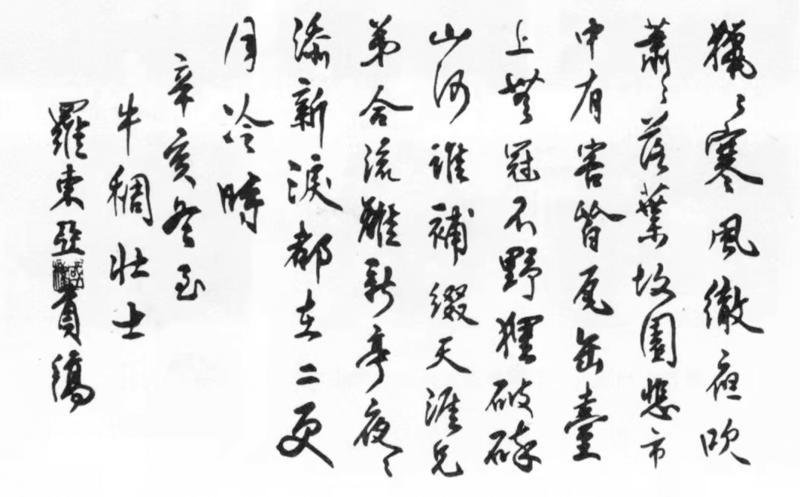 獵〻寒風徹夜吹
蕭〻落葉故園悲市
中有皆瓦缶臺
上無冠不野狸破碎
山河誰補綴天涯兄
弟合流離新亭夜〻
添新淚都在二更
月冷時
辛亥冬至
牛稠壯士
羅東亞稿